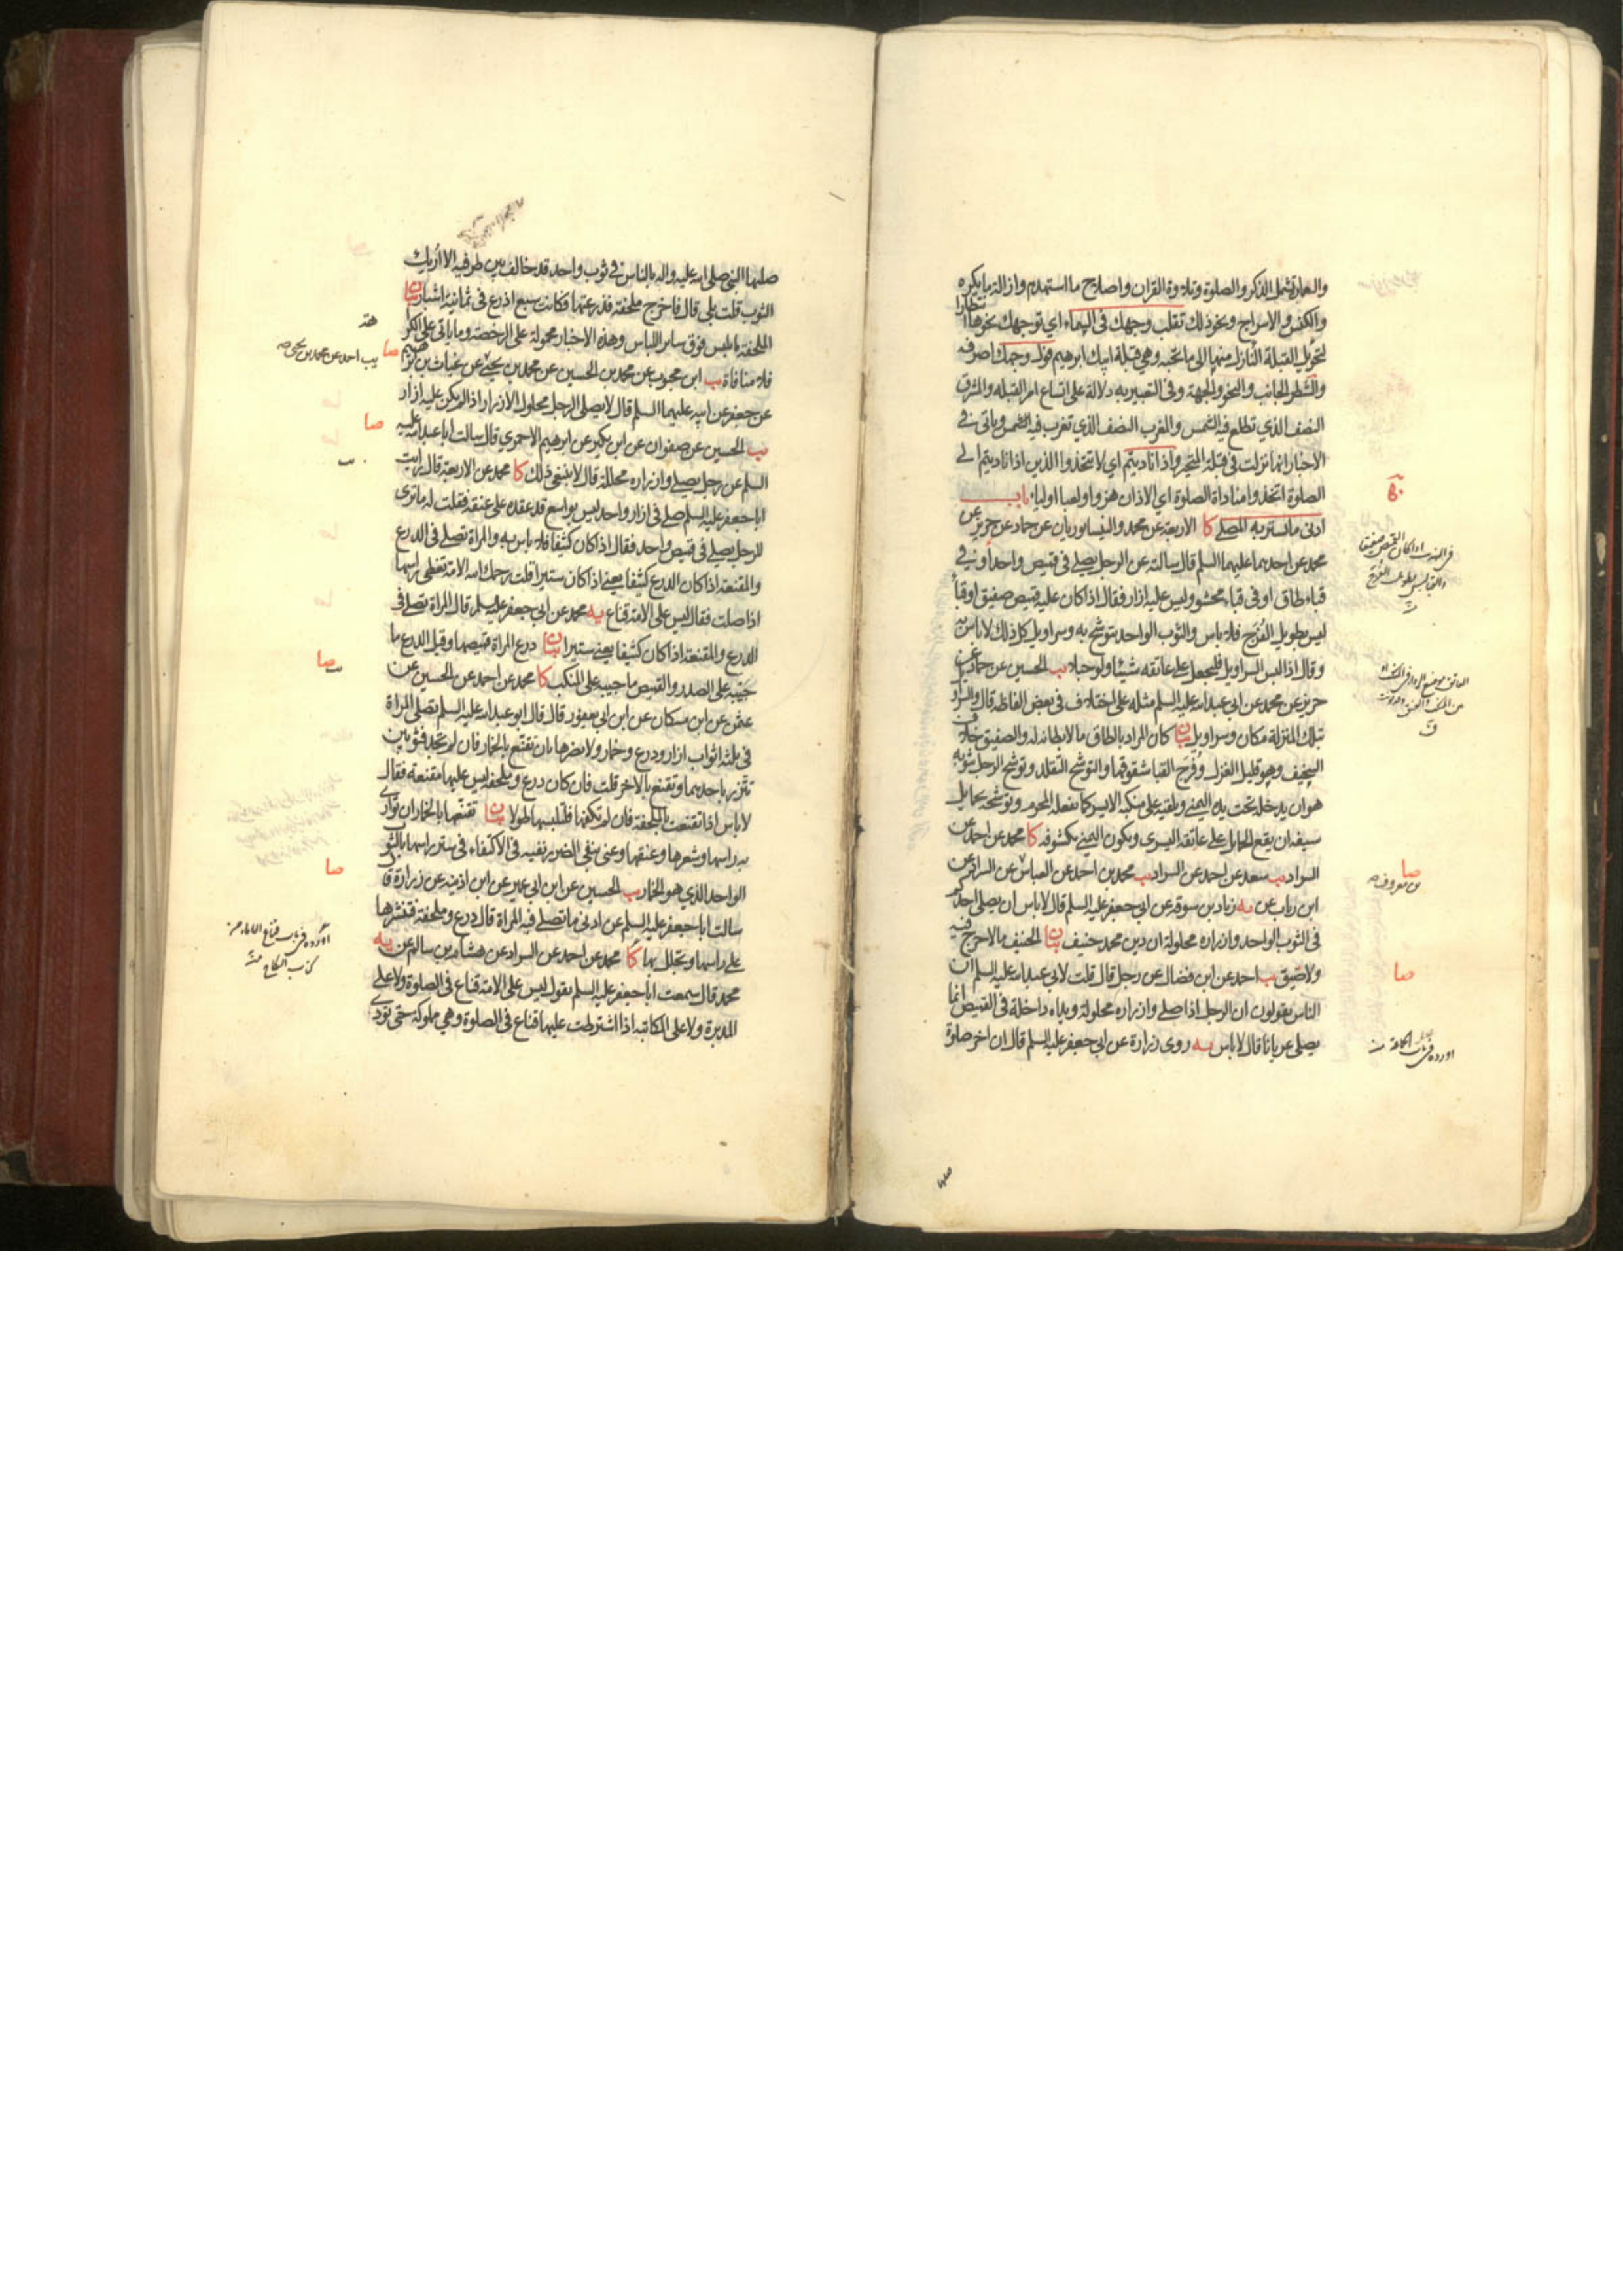 والعمارة تشمل الذكر والصلوة وتلاوة القران واصلاح ما استهدم وازالة ما يكره
والكنس والاسراج ونحو ذلك تقلب وجهك في السماء اي توجهك نحوها انتظارا
لتحويل القبلة النازل منها الى ما تحبه وهي قبلة ابيك ابرهيم فول وجهك اصرفه
والشطر الجانب والنحو والجهة وفي التعبير به دلالة على اتساع امر القبلة والمشرق
النصف الذي تطلع فيه الشمس والمغرب النصف الذي تغرب فيه الشمس وياتي في
الاخبار انها نزلت في قبلة المتحير واذا ناديتم اي لا تتخذوا الذين اذا ناديتم الى
الصلوة اتخذوا مناداة الصلوة اي الاذان هزوا ولعبا اولياء باب
ادنى ما تستر به المصلي كا الاربعة عن محمد والنيسابوريان عن حماد عن حريز عن
محمد عن احدهما عليهما السلم قال سالته عن الرجل يصلي في قميص واحد او في
قباء طاق او في قباء محشو وليس عليه ازار فقال اذا كان عليه قميص صفيق او قباء
ليس بطويل الفرج فلا باس والثوب الواحد يتوشح به وسراويل كل ذلك لا باس به
وقال اذا لبس السراويل فليجعل على عاتقه شيئا ولو حبلا يب الحسين عن حماد عن
حريز عن محمد عن ابي عبد الله عليه السلم مثله على اختلاف في بعض الفاظه قال والسراو
بتلك المنزلة مكان وسراويل بيان كان المراد بالطاق ما لا بطانة له والصفيق خلاف
السخيف وهو قليل الغزل وفرج القبا شقوقها والتوشح التقلد وتوشح الرجل بثوبه
هو ان يدخله تحت يده اليمنى ويلقيه على منكبه الايسر كما يفعله المحرم وتوشحه بحمايل
سيفه ان يقع الحمايل على عاتقه اليسرى ويكون اليمنى مكشوفة كا محمد عن احمد عن
السراد يب سعد عن احمد عن السراد يب محمد بن احمد عن العباس عن السراد عن
ابن رباب عن يه زياد بن سوقة عن ابي جعفر عليه السلم قال لا باس ان يصلي احدكم
في الثوب الواحد وازراره محلولة ان دين محمد حنيف بيان الحنيف ما لا حرج فيه
ولا ضيق يب احمد عن ابن فضال عن رجل قال قلت لابي عبد الله عليه السلم ان
الناس يقولون ان الرجل اذا صلى وازراره محلولة ويداه داخلة في القميص انما
يصلي عريانا قال لا باس يه روى زرارة عن ابي جعفر عليه السلم قال ان اخر صلوة
صا
بن معروف صح
صا
صليها النبي صلى الله عليه واله بالناس في ثوب واحد قد خالف بين طرفيه الا اريك
الثوب قلت بلى قال فاخرج ملحفة فذرعتها فكانت سبع اذرع في ثمانية اشبار بيان
الملحفة ما يلبس فوق ساير اللباس وهذه الاخبار محمولة على الرخصة وما ياتي على الكر
فلا منافاة يب ابن محبوب عن محمد بن الحسين عن محمد بن يحيى عن غياث بن ابراهيم
عن جعفر عن ابيه عليهما السلم قال لا يصلي الرجل محلول الازرار اذا لم يكن عليه ازار
يب الحسين عن صفوان عن ابن بكير عن ابرهيم الاحمري قال سالت ابا عبد الله عليه
السلم عن رجل يصلي وازراره محللة قال لا ينبغي ذلك كا محمد عن الاربعة قال رايت
ابا جعفر عليه السلم صلى في ازار واحد ليس بواسع قد عقده على عنقه فقلت له ما ترى
للرجل يصلي في قميص واحد فقال اذا كان كثيفا فلا باس به والمراة تصلي في الدرع
والمقنعة اذا كان الدرع كثيفا يعني اذا كان ستيرا قلت رحمك الله الامة تغطي راسها
اذا صلت فقال ليس على الامة قناع يه محمد عن ابي جعفر عليه السلم قال المراة تصلي في
الدرع والمقنعة اذا كان كثيفا يعني ستيرا بيان درع المراة قميصها وقيل الدرع ما
جيبه على الصدر والقميص ما جيبه على المنكب كا محمد عن احمد عن الحسين عن
عثمن عن ابن مسكان عن ابن ابي يعفور قال قال ابو عبد الله عليه السلم تصلي المراة
في ثلثة اثواب ازار ودرع وخمار ولا يضرها بان تقنع بالخمار فان لم تجد فثوبين
تتزر باحدهما وتقنع بالاخر قلت فان كان درع وملحفة ليس عليها مقنعة فقال
لا باس اذا تقنعت بالملحفة فان لم تكفها فلتلبسها طولا بيان تقنعها بالخمار ان تواري
به راسها وشعرها وعنقها وعنى بنفي الضرر نفيه في الاكتفاء في ستر راسها بالثوب
الواحد الذي هو الخمار يب الحسين عن ابن ابي عمير عن ابن اذينة عن زرارة قا
سالت ابا جعفر عليه السلم عن ادنى ما تصلي فيه المراة قال درع وملحفة فتنشرها
على راسها وتجلل بها كا محمد عن احمد عن السراد عن هشام بن سالم عن يه
محمد قال سمعت ابا جعفر عليه السلم يقول ليس على الامة قناع في الصلوة ولا على
المدبرة ولا على المكاتبة اذا اشترطت عليها قناع في الصلوة وهي مملوكة حتى تودي
صا
يب احمد عن محمد بن يحيى صح
صا
صا
صا